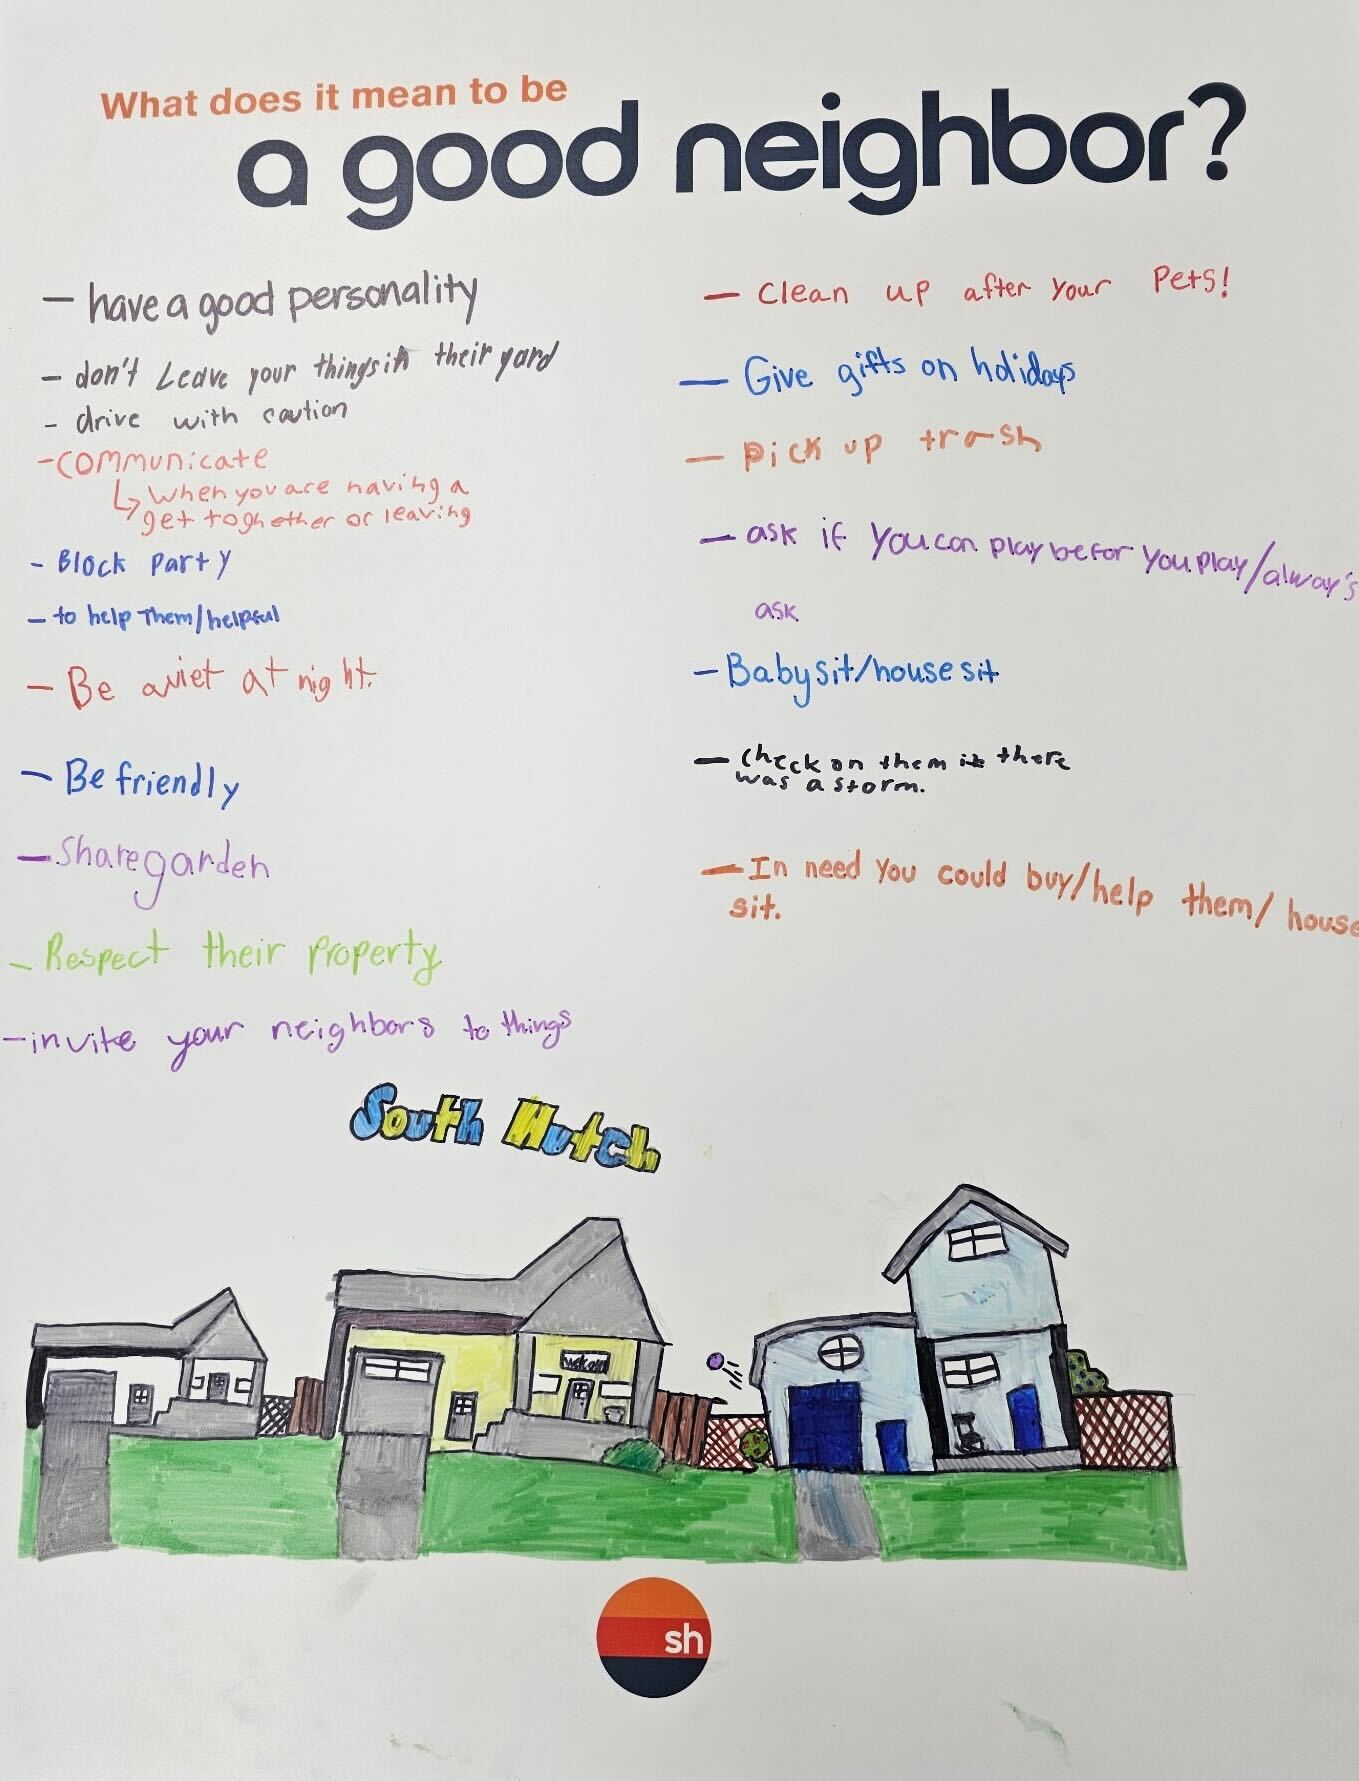 What does it mean to be
a good neighbor?
- have a good personality
- don't Leave your things in their yard
- drive with caution
- communicate
↳ when you are having a
get toghether or leaving
- Block Party
- to help Them/helpful
- Be quiet at night.
- Be friendly
- Share garden
- Respect their Property
- invite your neighbors to things
- Clean up after your Pets!
- Give gifts on holidays
- Pick up trash
- ask if You can play befor you play/alway's
ask
- Babysit/house sit
- check on them if there
was a storm.
- In need you could buy/help them/house
sit.
South Hutch
welcome
sh